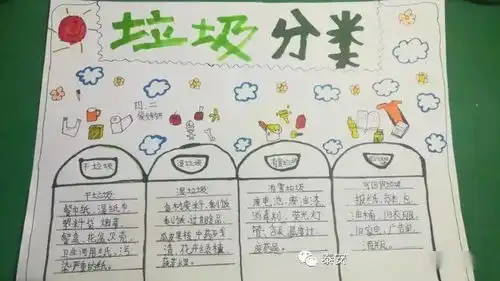 垃圾分类
四.二
干垃圾
湿垃圾
有害垃圾
干垃圾
餐巾纸、湿纸巾
塑料袋、烟蒂
餐盒、花盆、贝壳
卫生间用纸、污
染严重的纸。
湿垃圾
食材废料、剩饭
剩饭、过期食品、
瓜皮果核、中药及残
渣、花卉绿植、
蔬菜水果。
有害垃圾
废电池、废油漆
消毒剂、荧光灯
管、含汞温度计
废药品。
可回收垃圾
报纸、书本、包
油桶、旧衣服、
旧家电、广告纸